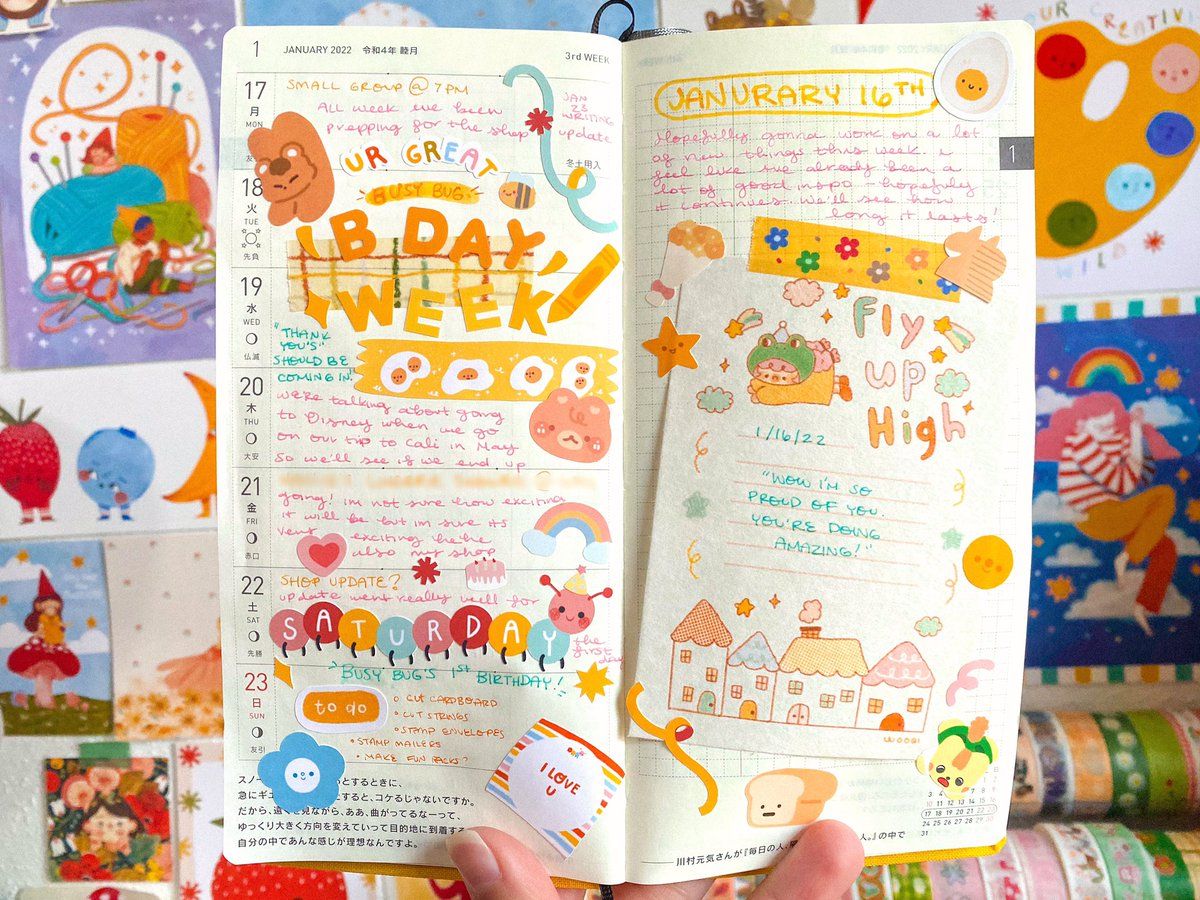 1 JANUARY 2022 令和4年 睦月
3rd WEEK
17 月 MON
SMALL GROUP @ 7PM
All week we been
prepping for the shop
JAN
23
WRITING
update
冬土用入
UR GREAT
BUSY BUG
18 火 TUE 先負
B DAY
WEEK
19 水 WED 仏滅
"THANK
YOU'S"
SHOULD BE
COMING IN.
20 木 THU 大安
we're talking about going
to Disney when we go
on our trip to Cali in May
So we'll see if we end up
21 金 FRI 赤口
going! im not sure how exciting
it will be but im sure its
very exciting hehe
also my shop
22 土 SAT 先勝
SHOP UPDATE?
update went really well for
SATURDAY
the
first
day
23 日 SUN 友引
"BUSY BUG'S 1ST BIRTHDAY!"
to do
CUT CARDBOARD
CUT STRINGS
STAMP ENVELOPES
STAMP MAILERS
MAKE FUN PACKS?
I LOVE
U
スノー
とするときに、
急にギ
とすると、コケるじゃないですか。
だから、遠くを見ながら、ああ、曲がってるなーって、
ゆっくり大きく方向を変えていって目的地に到着する
自分の中であんな感じが理想なんですよ。
JANURARY 16TH
1
Hopefully gonna work on a lot
of new things this week i
feel like ive already been a
lot of good inspo - hopefully
it continues. We'll see how
long it lasts!
Fly
up
High
1/16/22
"WOW I'M SO
PROUD OF YOU.
YOU'RE DOING
AMAZING!"
3 4
10 11 12 13 14 15 16
17 18 19 20 21 22 23
24 25 26 27 28 29 30
31
川村元気さんが『毎日の人、
人。』の中で
UR CREATIV
WILD